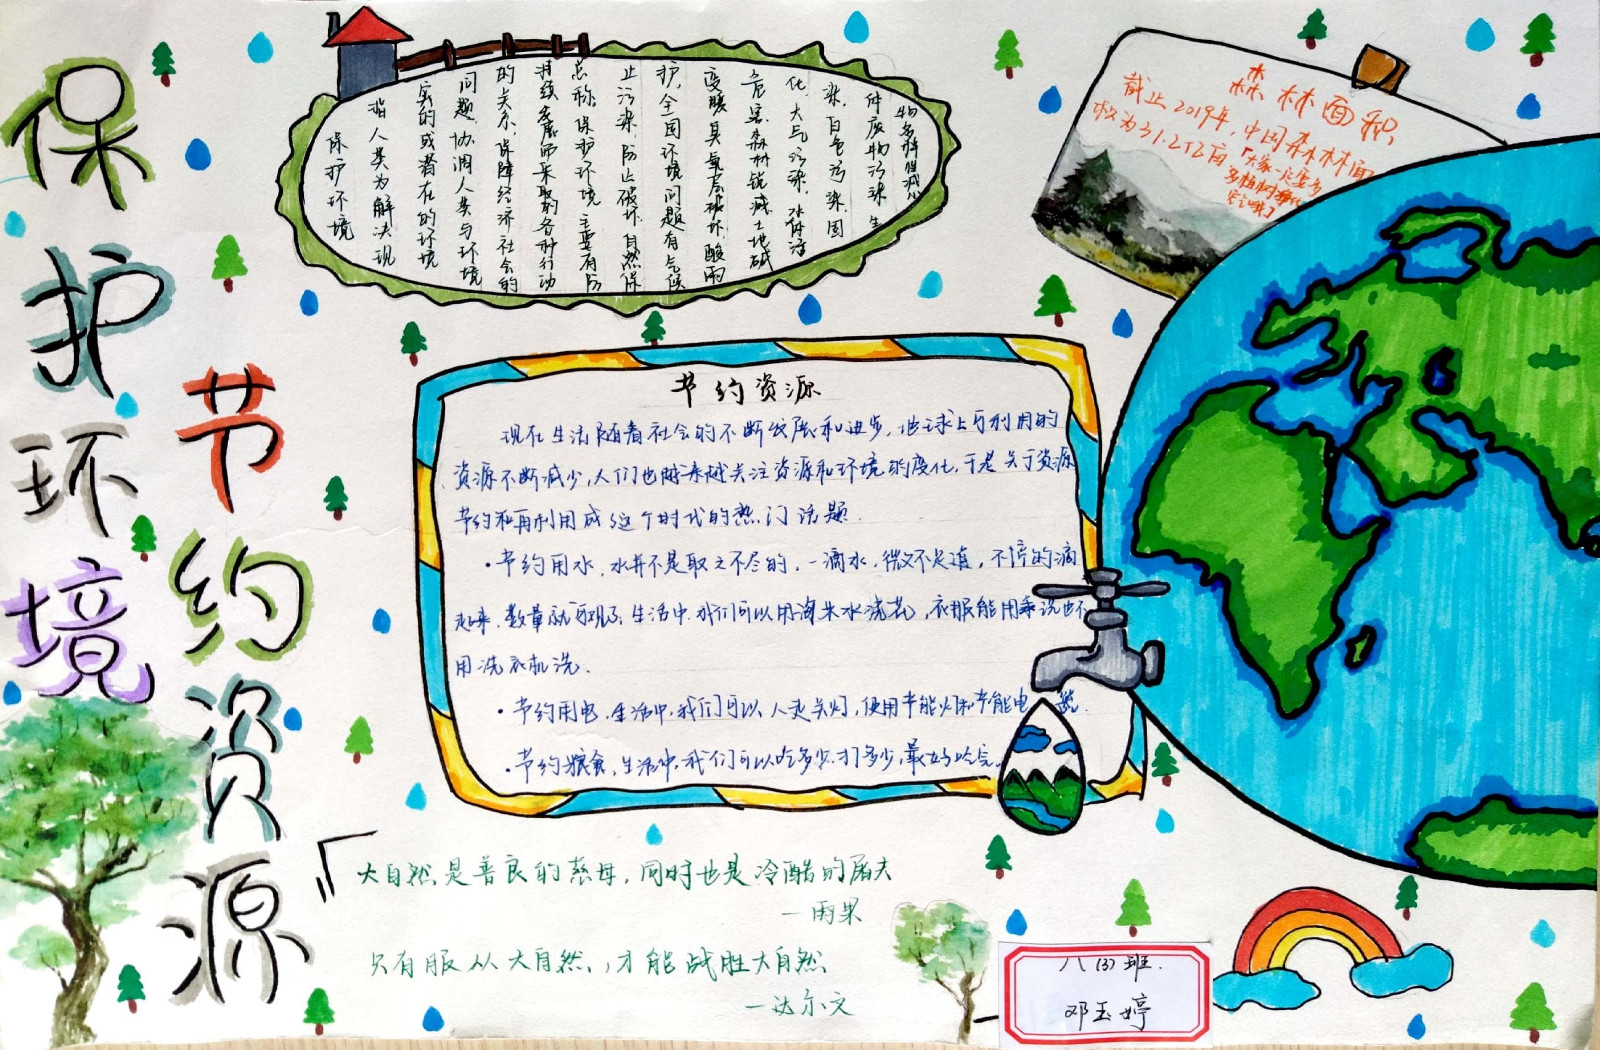 保护环境
节约资源
保护环境
指人类为解决现
实的或潜在的环境
问题,协调人类与环境
的关系,保障经济社会的
持续发展而采取的各种行动
总称。保护环境主要有防
止污染,防止破坏,自然保
护。全国环境问题有气候
变暖臭氧层破坏、酸雨
危害、森林锐减、土地碱
化、大气污染、水体污
染、白色污染、固
体废物污染生
物多样性减少
森林面积
截止2019年,中国森林面
积为31.2亿亩
「大家一定要多
多植树
节约资源
现在生活随着社会的不断发展和进步,地球上可利用的
资源不断减少,人们也越来越关注资源和环境的变化,于是关于资源
节约和再利用成了这个时代的热门话题.
·节约用水,水并不是取之不尽的,一滴水,微不足道,不停的滴
起来,数量就可观了,生活中,我们可以用淘米水浇花,衣服能用手洗也不
用洗衣机洗.
·节约用电,生活中,我们可以人走关灯,使用节能灯和节能电器.
·节约粮食,生活中,我们可以吃多少,打多少,最好吃完。
「大自然是善良的慈母,同时也是冷酷的屠夫
—雨果
只有服从大自然,才能战胜大自然
—达尔文
八(3)班.
邓玉婷